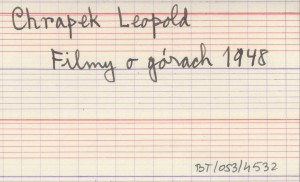 Chrapek Leopold
Filmy o górach 1948
BT/053/4532